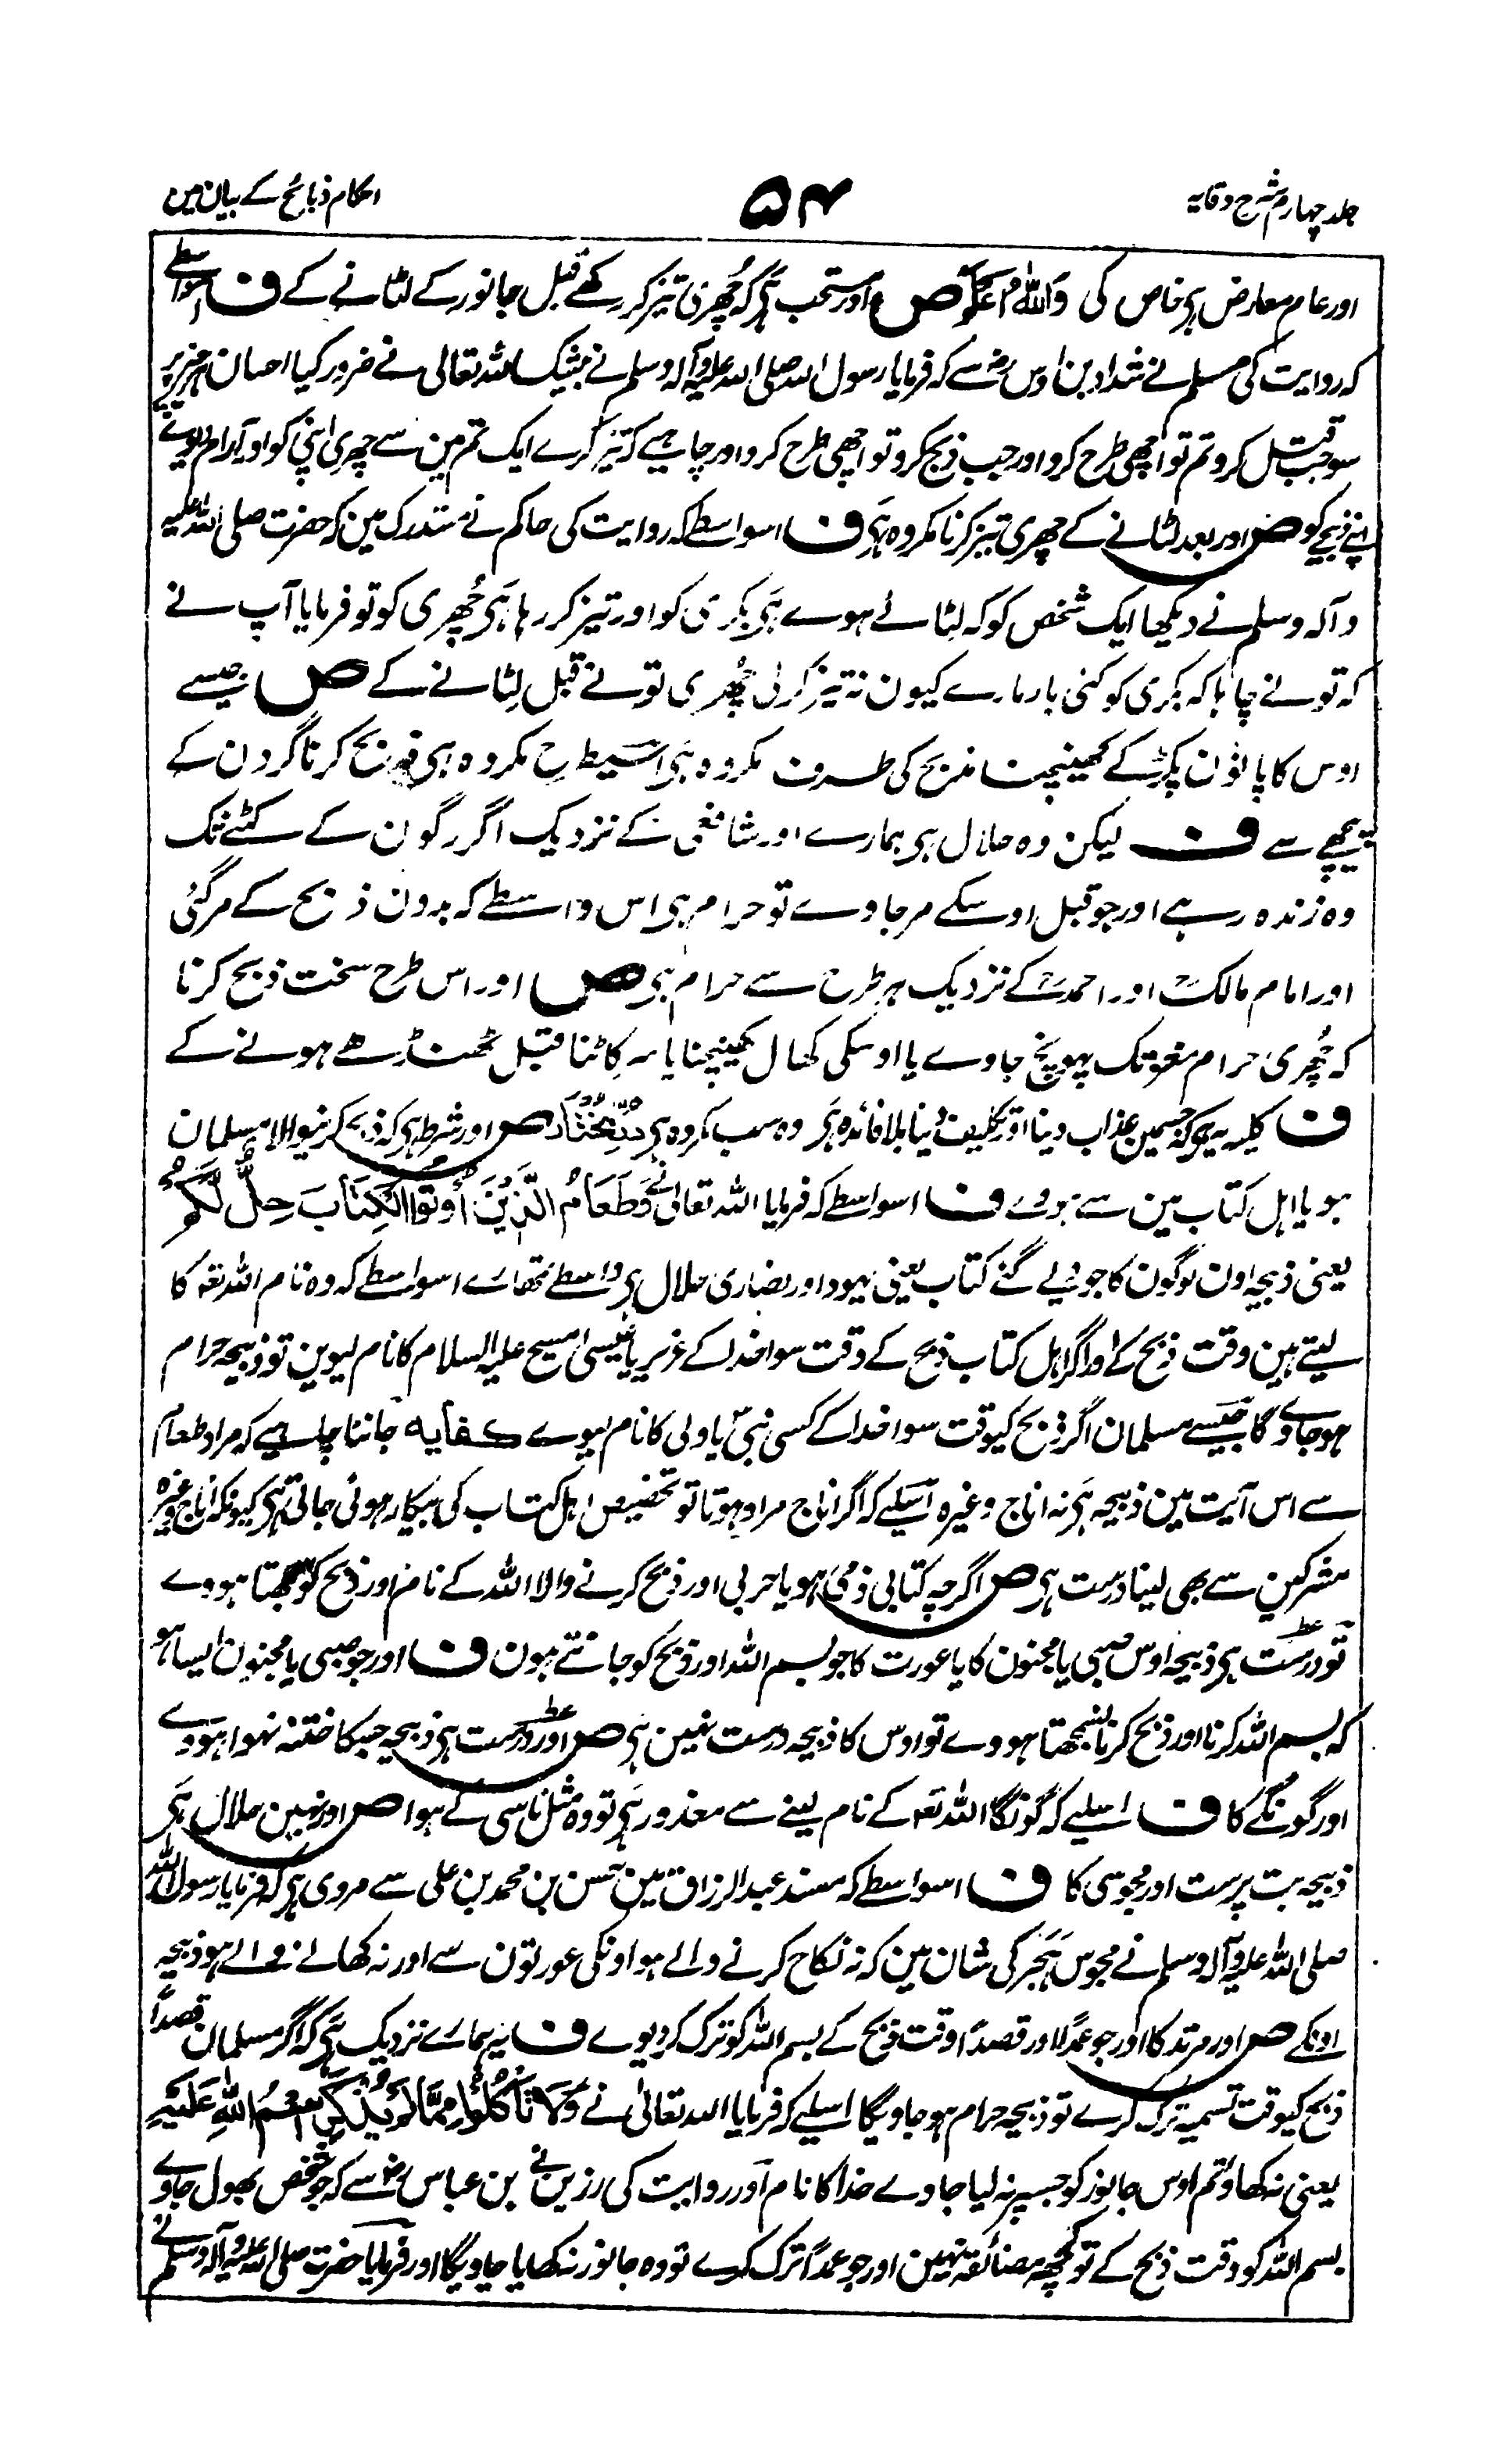 جلد چہارم شرح وقایہ
۵۴
احکام ذبائح کے بیان مین
اور عام معارض ہی خاص کی وَاللّٰهُ اَعْلَمُ ص اور مستحب ہی کہ چُھری تیز کر رکھے قبل جانور کے لٹانے کے ف اسواسطے
کہ روایت کی مسلم نے شداد بن اوسؓ سے کہ فرمایا رسول اللہ صلی اللہ علیہ وآلہ وسلم نے بیشک اللہ تعالی نے ضرور کیا احسان ہر چیز پر
سو جب قتل کرو تم تو اچھی طرح کرو اور جب ذبح کرو تو اچھی طرح کرو اور چاہیے کہ تیز کرے ایک تم مین سے چھری اپنی کو اور آرام دیوے
اپنے ذبیحے کو ص اور بعد لٹانے کے چھری تیز کرنا مکروہ ہی ف اسواسطے کہ روایت کی حاکم نے مستدرک مین کہ حضرت صلی اللہ علیہ
و آلہ وسلم نے دیکھا ایک شخص کو کہ لٹائے ہوے ہی بکری کو اور تیز کر رہا ہی چُھری کو تو فرمایا آپ نے
کہ تو نے چاہا کہ بکری کو کئی بار مارے کیون نہ تیز کر لی چُھری تو نے قبل لِٹانے کے ص جیسے
اوس کا پانؤن پکڑ کے کھینچنا مذبح کی طرف مکروہ ہی اسیطرح مکروہ ہی ذبح کرنا گردن کے
پیچھے سے ف لیکن وہ حلال ہی ہمارے اور شافعی کے نزدیک اگر رگون کے کٹنے تک
وہ زندہ رہے اور جو قبل اوسکے مر جاوے تو حرام ہی اس واسطے کہ بدون ذبح کے مر گئی
اور امام مالکؒ اور احمدؒ کے نزدیک ہر طرح سے حرام ہی ص اور اس طرح سخت ذبح کرنا
کہ چُھری حرام مغز تک پہونچ جاوے یا اوسکی کھال کھینچنا یا سر کاٹنا قبل ٹھنڈے ہونے کے
ف کلیہ یہ ہی کہ جسمین عذاب دینا اور تکلیف دینا بلا فائدہ ہی وہ سب مکروہ ہی دُرِّ مُخْتَار ص اور شرط ہی کہ ذبح کرنیوالا مسلمان
ہو یا اہل کتاب مین سے ہووے ف اسواسطے کہ فرمایا اللہ تعالی نے وَطَعَامُ الَّذِيْنَ اُوْتُوا الْكِتَابَ حِلٌّ لَّكُمْ
یعنی ذبیحہ اون لوگون کا جو دیے گئے کتاب یعنی یہود اور نصاری حلال ہی واسطے تمھارے اسواسطے کہ وہ نام اللہ تعہ کا
لیتے ہین وقت ذبح کے اور اگر اہل کتاب ذبح کے وقت سوا خدا کے عزیر یا عیسیٰ مسیح علیہ السلام کا نام لیوین تو ذبیحہ حرام
ہو جاوے گا جیسے مسلمان اگر ذبح کیوقت سوا خدا کے کسی نبی یا ولی کا نام لیوے کفایہ جاننا چاہیے کہ مراد طعام
سے اس آیت مین ذبیحہ ہی نہ اناج وغیرہ اسلیے کہ اگر اناج مراد ہوتا تو تخصیص اہل کتاب کی بیکار ہوئی جاتی ہی کیونکہ اناج وغیرہ
مشرکین سے بھی لینا درست ہی ص اگرچہ کتابی ذمی ہو یا حربی اور ذبح کرنے والا اللہ کے نام اور ذبح کو سمجھتا ہووے
تو درست ہی ذبیحہ اوس صبی یا مجنون کا یا عورت کا جو بسم اللہ اور ذبح کو جانتے ہون ف اور جو صبی یا مجنون ایسا ہو
کہ بسم اللہ کرنا اور ذبح کرنا نسمجھتا ہووے تو اوس کا ذبیحہ درست نہین ہی ص اور درست ہی ذبیحہ جسکا ختنہ نہوا ہووے
اور گونگے کا ف اسلیے کہ گونگا اللہ تعہ کے نام لینے سے معذور ہی تو وہ مثل ناسی کے ہوا ص اور نہین حلال ہی
ذبیحہ بت پرست اور مجوسی کا ف اسواسطے کہ مسند عبد الرزاق مین حسن بن محمد بن علی سے مروی ہی کہ فرمایا رسول اللہ
صلی اللہ علیہ وآلہ وسلم نے مجوس ہَجَر کی شان مین کہ نہ نکاح کرنے والے ہو اونکی عورتون سے اور نہ کھانے والے ہو ذبیحہ
اونکے ص اور مرتد کا اور جو عمداً اور قصداً وقت ذبح کے بسم اللہ کو ترک کر دیوے ف یہ ہمارے نزدیک ہی کہ اگر مسلمان قصداً
ذبح کیوقت تسمیہ ترک کرے تو ذبیحہ حرام ہو جاویگا اسلیے کہ فرمایا اللہ تعالیٰ نے وَلَا تَأْكُلُوْا مِمَّا لَمْ يُذْكَرِ اسْمُ اللّٰهِ عَلَيْهِ
یعنی نہ کھاؤ تم اوس جانور کو جسپر نہ لیا جاوے خدا کا نام اور روایت کی رزین نے بن عباسؓ سے کہ جو شخص بھول جاوے
بسم اللہ کو وقت ذبح کے تو کچھ مضائقہ نہین اور جو عمداً ترک کرے تو وہ جانور نہ کھایا جاویگا اور فرمایا حضرت صلی اللہ علیہ وآلہ وسلم نے